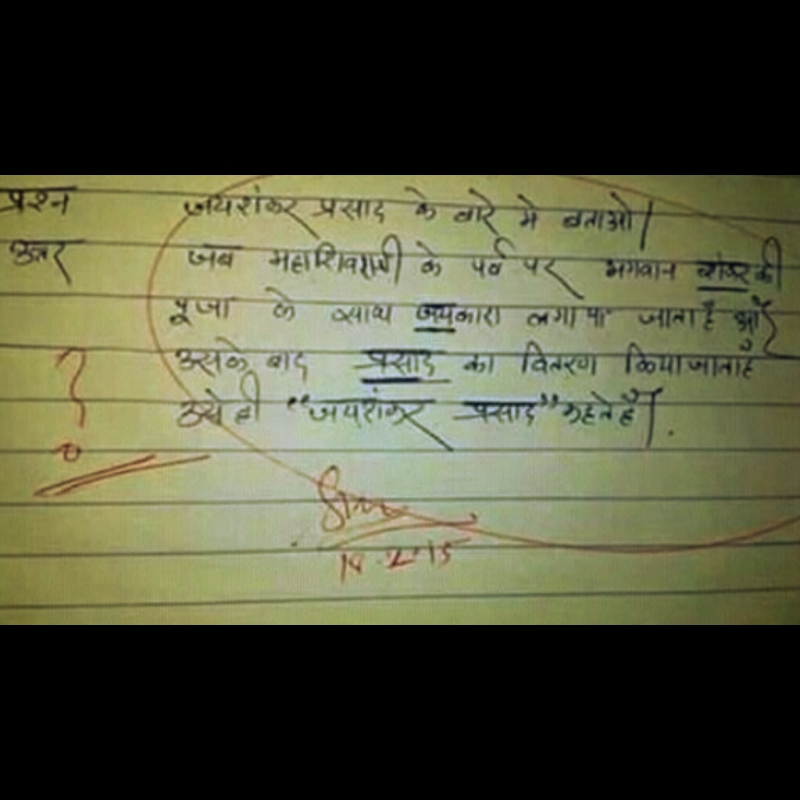 प्रश्न जयशंकर प्रसाद के बारे मे बताओ।
उत्तर जब महाशिवरात्री के पर्व पर भगवान शंकर की
पूजा के साथ जयकारा लगाया जाता है और
उसके बाद प्रसाद का वितरण किया जाता है
उसे ही "जयशंकर प्रसाद" कहते हैं।
?